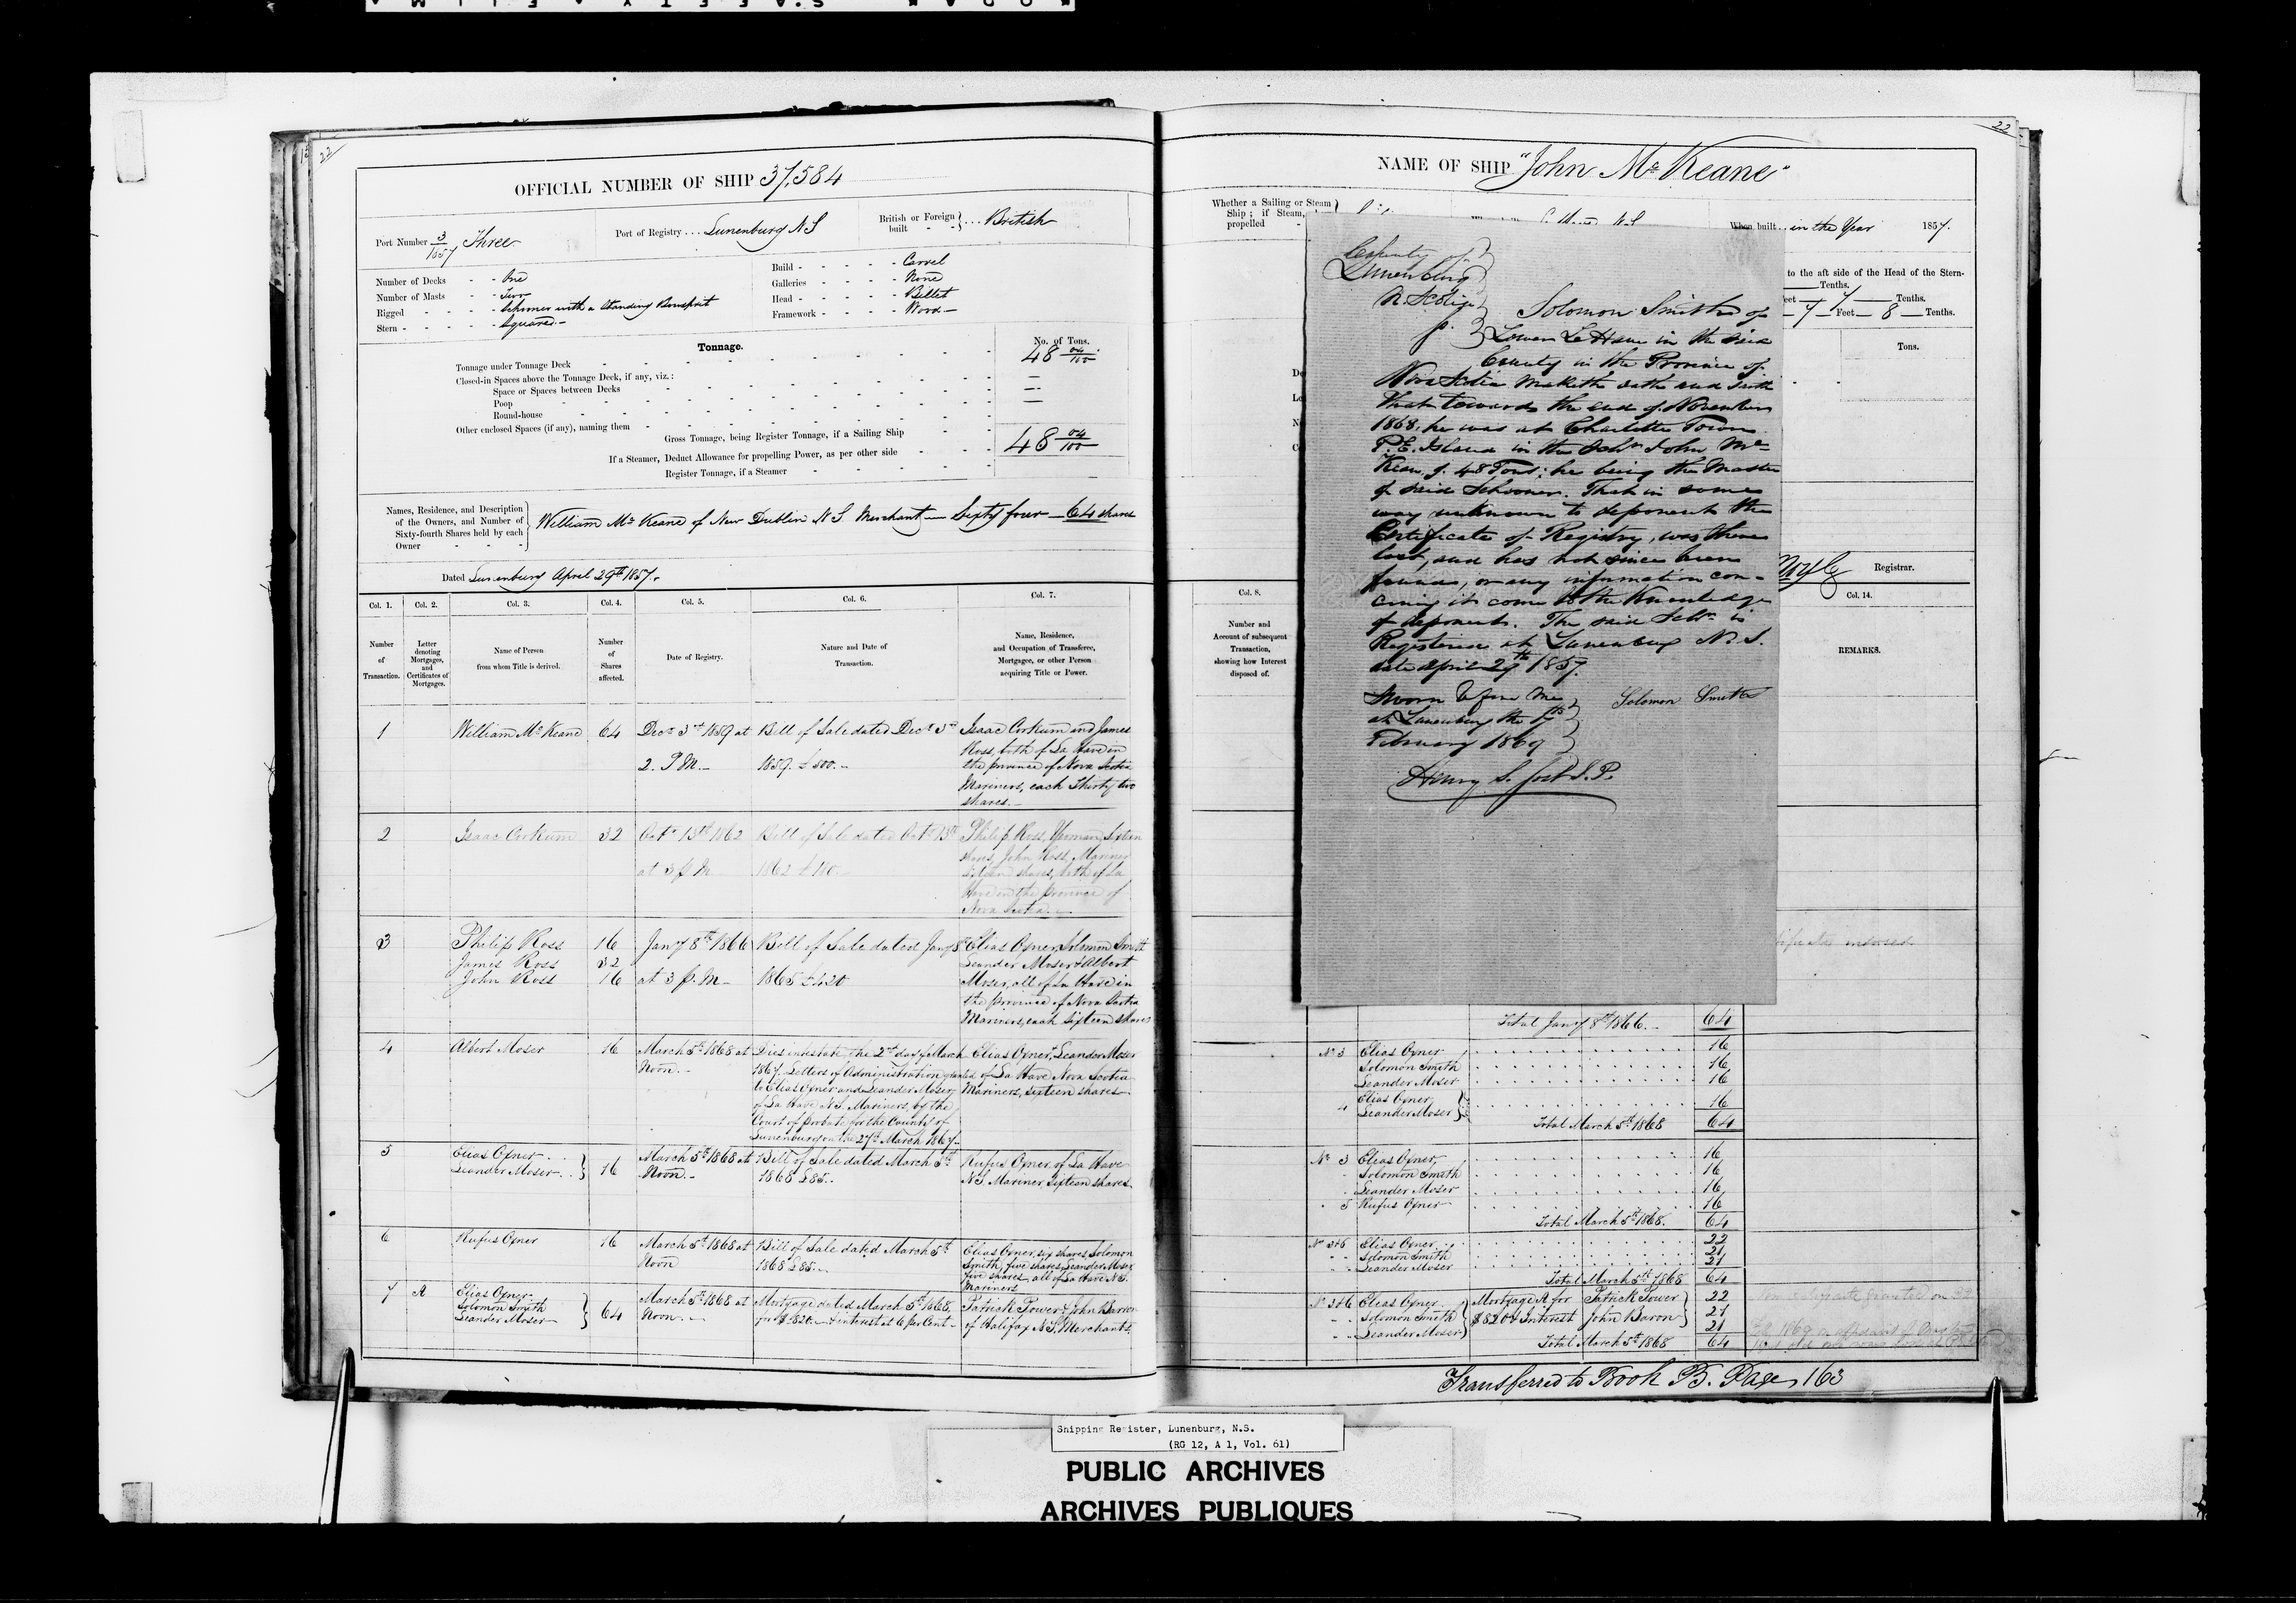 22
OFFICIAL NUMBER OF SHIP 37,584
Port Number 3/1857 Three
Port of Registry ... Lunenburg N S
British or Foreign built } ... British
Number of Decks - - One
Number of Masts - - Two
Rigged - - - - Schooner with a Standing Bowsprit
Stern - - - - - Square
Build - - - - - Carvel
Galleries - - - - None
Head - - - - - Billet
Framework - - - - Wood
Tonnage.
No. of Tons.
Tonnage under Tonnage Deck 48 04/100
Closed-in Spaces above the Tonnage Deck, if any, viz.:
Space or Spaces between Decks
Poop
Round-house
Other enclosed Spaces (if any), naming them
Gross Tonnage, being Register Tonnage, if a Sailing Ship 48 04/100
If a Steamer, Deduct Allowance for propelling Power, as per other side
Register Tonnage, if a Steamer
Names, Residence, and Description
of the Owners, and Number of
Sixty-fourth Shares held by each
Owner
William McKeane of New Dublin N S Merchant — Sixty four — 64 shares
Dated Lunenburg April 29th 1857.
Col. 1. Col. 2. Col. 3. Col. 4. Col. 5. Col. 6. Col. 7.
Number of Transaction.
Letter denoting Mortgages, and Certificates of Mortgages.
Name of Person from whom Title is derived.
Number of Shares affected.
Date of Registry.
Nature and Date of Transaction.
Name, Residence, and Occupation of Transferee, Mortgagee, or other Person acquiring Title or Power.
1 William McKeane 64
Decr 3rd 1859 at
2. P M.
Bill of Sale dated Decr 3rd
1859. £500.
Isaac Corkum and James
Ross, both of La Have in
the province of Nova Scotia
Mariners, each Thirty two
shares.
2 Isaac Corkum 32
Octr 13th 1862
at 3 p M
Bill of Sale dated Octr 13th
1862
Philip Ross, Yeoman, Sixteen
shares, John Ross, Mariner
Sixteen shares, both of La
Have in the province of
Nova Scotia.
3 Philip Ross 16
James Ross 32
John Ross 16
Jany 8th 1866
at 3 p. M
Bill of Sale dated Jany 8th
1865 £420
Elias Oxner, Solomon Smith
Leander Moser & Albert
Moser, all of La Have in
the province of Nova Scotia
Mariners, each Sixteen shares
4 Albert Moser 16
March 5th 1868 at
Noon.
Dies intestate, the 2nd day of March
1867. Letters of Administration granted
to Elias Oxner and Leander Moser
of La Have N.S. Mariners, by the
Court of Probate for the County of
Lunenburg on the 27th March 1867.
Elias Oxner, Leander Moser
of La Have Nova Scotia
Mariners, sixteen shares
5 Elias Oxner
Leander Moser } 16
March 5th 1868 at
Noon.
Bill of Sale dated March 5th
1868 £85.
Rufus Oxner, of La Have
N.S. Mariner, sixteen shares
6 Rufus Oxner 16
March 5th 1868 at
Noon
Bill of Sale dated March 5th
1868 £85.
Elias Oxner, six shares, Solomon
Smith, five shares, Leander Moser
five shares, all of La Have N.S.
Mariners
7 A Elias Oxner
Solomon Smith
Leander Moser } 64
March 5th 1868 at
Noon.
Mortgage dated March 5th 1868,
for $820. & interest at 6 per Cent
Patrick Power & John Barron
of Halifax N.S. Merchants
22
NAME OF SHIP "John McKeane"
Whether a Sailing or Steam
Ship; if Steam,
propelled
When built .. in the Year 1857.
to the aft side of the Head of the Stern-
Tenths.
7 Tenths.
7 Feet 8 Tenths.
Tons.
Registrar.
Col. 8.
Number and
Account of subsequent
Transaction,
showing how Interest
disposed of.
Col. 14.
REMARKS.
County of
Lunenburg
N. Scotia
Solomon Smith of
Lower La Have in the said
County in the Province of
Nova Scotia Maketh oath and saith
that towards the end of November
1868, he was at Charlotte Town
P.E. Island in the Schr John Mc
Kean, of 48 Tons; he being the Master
of said Schooner. That in some
way unknown to deponent the
Certificate of Registry, was there
lost, and has not since been
found, or any information con-
cerning it come to the Knowledge
of deponent. The said Schr is
Registered at Lunenburg N. S.
date April 29th 1857.
Sworn before me
at Lunenburg the
February 1869
Solomon Smith
Henry S. Jost J.P.
Total Jany 8th 1866. 64
No 3 Elias Oxner 16
Solomon Smith 16
Leander Moser 16
4 Elias Oxner
Leander Moser } 16
Total March 5th 1868 64
No 3 Elias Oxner 16
Solomon Smith 16
Leander Moser 16
5 Rufus Oxner 16
Total March 5th 1868. 64
No 3&6 Elias Oxner 22
Solomon Smith 21
Leander Moser 21
Total March 5th 1868 64
No 3&6 Elias Oxner 22
Solomon Smith 21
Leander Moser 21
Mortgage A for
$820 & Interest
Patrick Power
John Baron
Total March 5th 1868 64
Transferred to Book B. Page 163
Shipping Register, Lunenburg, N.S.
(RG 12, A 1, Vol. 61)
PUBLIC ARCHIVES
ARCHIVES PUBLIQUES